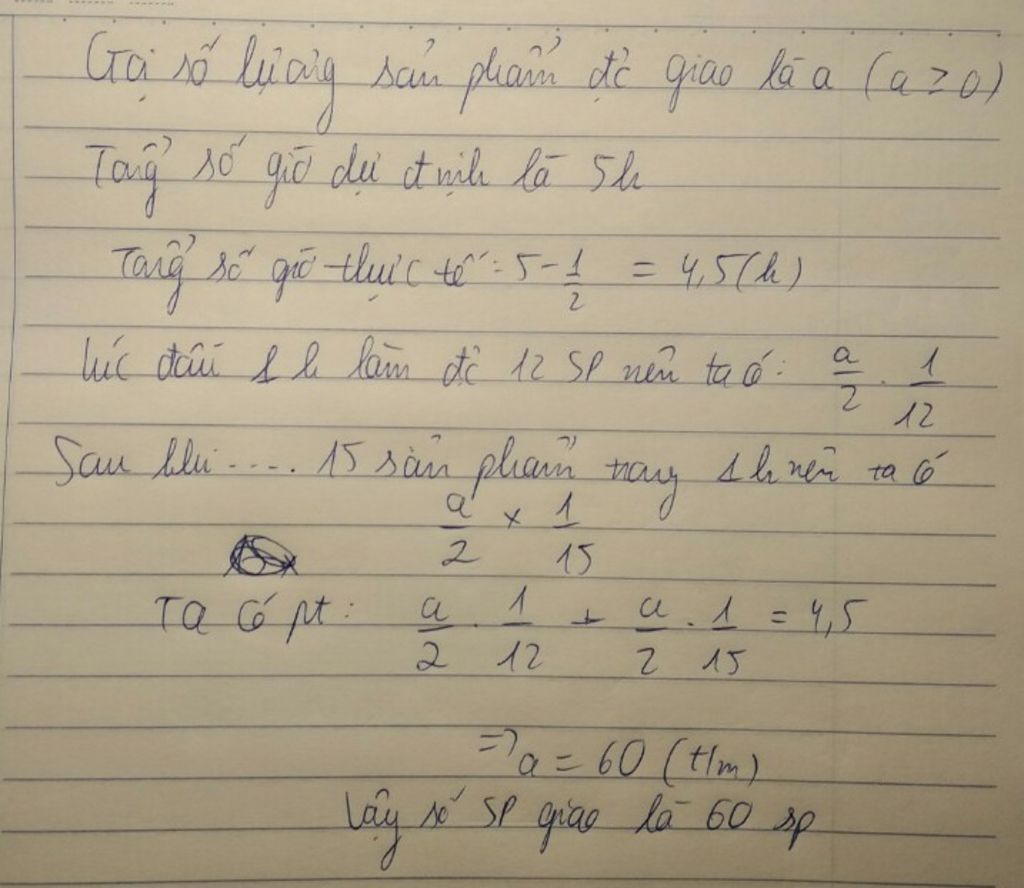 Gọi số lượng sản phẩm đc giao là a (a ≥ 0)
Tổng số giờ dự định là 5h
Tổng số giờ thực tế : 5 - 1/2 = 4,5 (h)
lúc đầu 1h làm đc 12 SP nên ta có : a/2 . 1/12
Sau khi .... 15 sản phẩm trong 1h nên ta có
a/2 × 1/15
Ta có pt : a/2 . 1/12 + a/2 . 1/15 = 4,5
=> a = 60 (t/m)
Vậy số SP giao là 60 sp